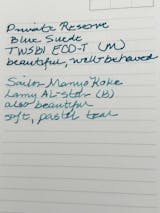 Private Reserve
Blue Suede
TWSBI ECO-T (M)
beautiful, well-behaved
Sailor Manyo Koke
Lamy AL-Star (B)
also beautiful
soft, pastel teal